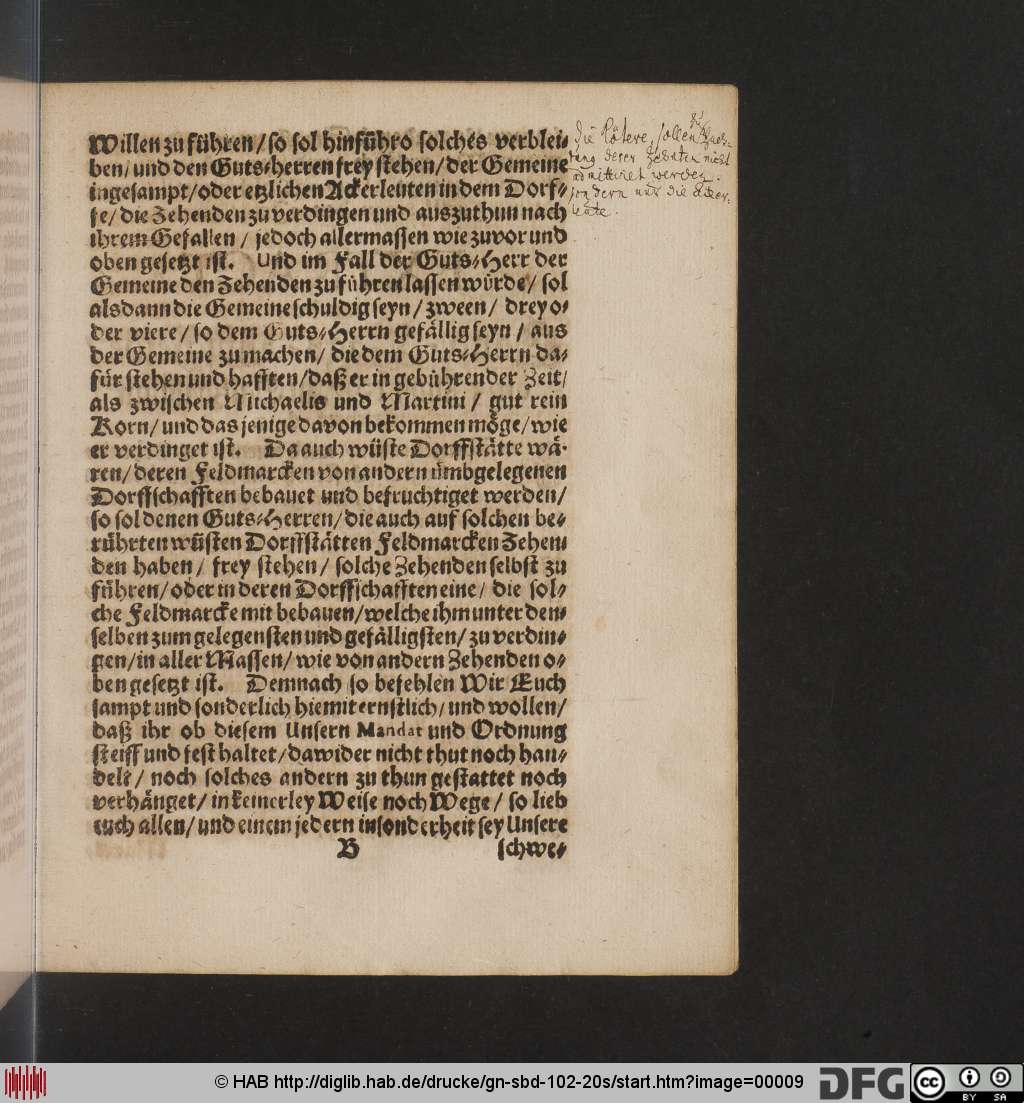 Willen zu führen/ so sol hinführo solches verblei⸗
ben/ und den Guts⸗herren frey stehen/ der Gemeine
ingesampt/ oder etzlichen Ackerleuten in dem Dorf⸗
fe/ die Zehenden zu verdingen und auszuthun nach
ihrem Gefallen / jedoch allermassen wie zuvor und
oben gesetzt ist. Und im Fall der Guts⸗Herr der
Gemeine den Zehenden zu führen lassen würde/ sol
alsdann die Gemeine schuldig seyn/ zween/ drey o⸗
der viere/ so dem Guts⸗Herrn gefällig seyn / aus
der Gemeine zu machen/ die dem Guts⸗Herrn da⸗
für stehen und hafften/ daß er in gebührender Zeit/
als zwischen Michaelis und Martini / gut rein
Korn/ und dasjenige davon bekommen möge/ wie
er verdinget ist. Da auch wüste Dorffstätte wä⸗
ren/ deren Feldmarcken von andern ümbgelegenen
Dorffschafften bebauet und befruchtiget werden/
so sol denen Guts⸗Herren/ die auch auf solchen be⸗
rührten wüsten Dorffstätten Feldmarcken Zehen⸗
den haben/ frey stehen/ solche Zehenden selbst zu
führen/ oder in deren Dorffschafften eine/ die sol⸗
che Feldmarcke mit bebauen/ welche ihm unter den⸗
selben zum gelegensten und gefälligsten/ zu verdin⸗
gen/ in aller Massen/ wie von andern Zehenden o⸗
ben gesetzt ist. Demnach so befehlen Wir Euch
sampt und sonderlich hiemit ernstlich/ und wollen/
daß ihr ob diesem Unsern Mandat und Ordnung
steiff und fest haltet/ dawider nicht thut noch han⸗
delt/ noch solches andern zu thun gestattet noch
verhänget/ in keinerley Weise noch Wege/ so lieb
euch allen/ und einem jedern insonderheit sey Unsere
B schwe⸗
die Kötere sollen zu
deren Zehnten nicht
admittiret werden.
sondern nur die Acker⸗
leute.
© HAB http://diglib.hab.de/drucke/gn-sbd-102-20s/start.htm?image=00009
DFG
cc
BY SA